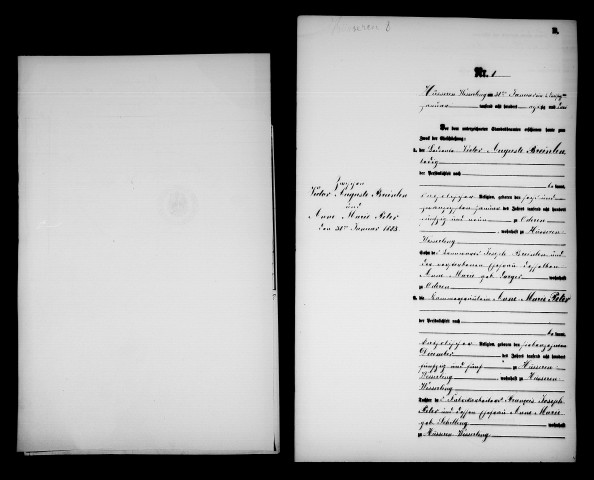 B.
Nr. 1
Hüsseren Wesserling am 31ten Januar
tausend acht hundert achtzig und drei
Vor dem unterzeichneten Standesbeamten erschienen heute zum
Zweck der Eheschließung:
1. der Victor Auguste Brünlen
ledig
der Persönlichkeit nach
kannt,
katholischer Religion, geboren den sechs und
zwanzigsten Januar des Jahres tausend acht hundert
fünfzig und neun zu Oderen
, wohnhaft zu Hüsseren
Wesserling
Sohn des Joseph Brünlen und
der verstorbenen Ehefrau desselben
Anne Marie geb. wohnhaft
zu Oderen
2. die Anne Marie Peter
der Persönlichkeit nach
kannt,
katholischer Religion, geboren den siebenzehnten
December des Jahres tausend acht hundert
fünfzig und fünf zu Hüsseren
Wesserling, wohnhaft zu Hüsseren
Wesserling
Tochter des Fabrikarbeiters François Joseph
Peter und dessen Ehefrau Anne Marie
geb. Schilling wohnhaft
zu Hüsseren Wesserling
Zwischen
Victor Auguste Brünlen
und
Anne Marie Peter
den 31ten Januar 1883.